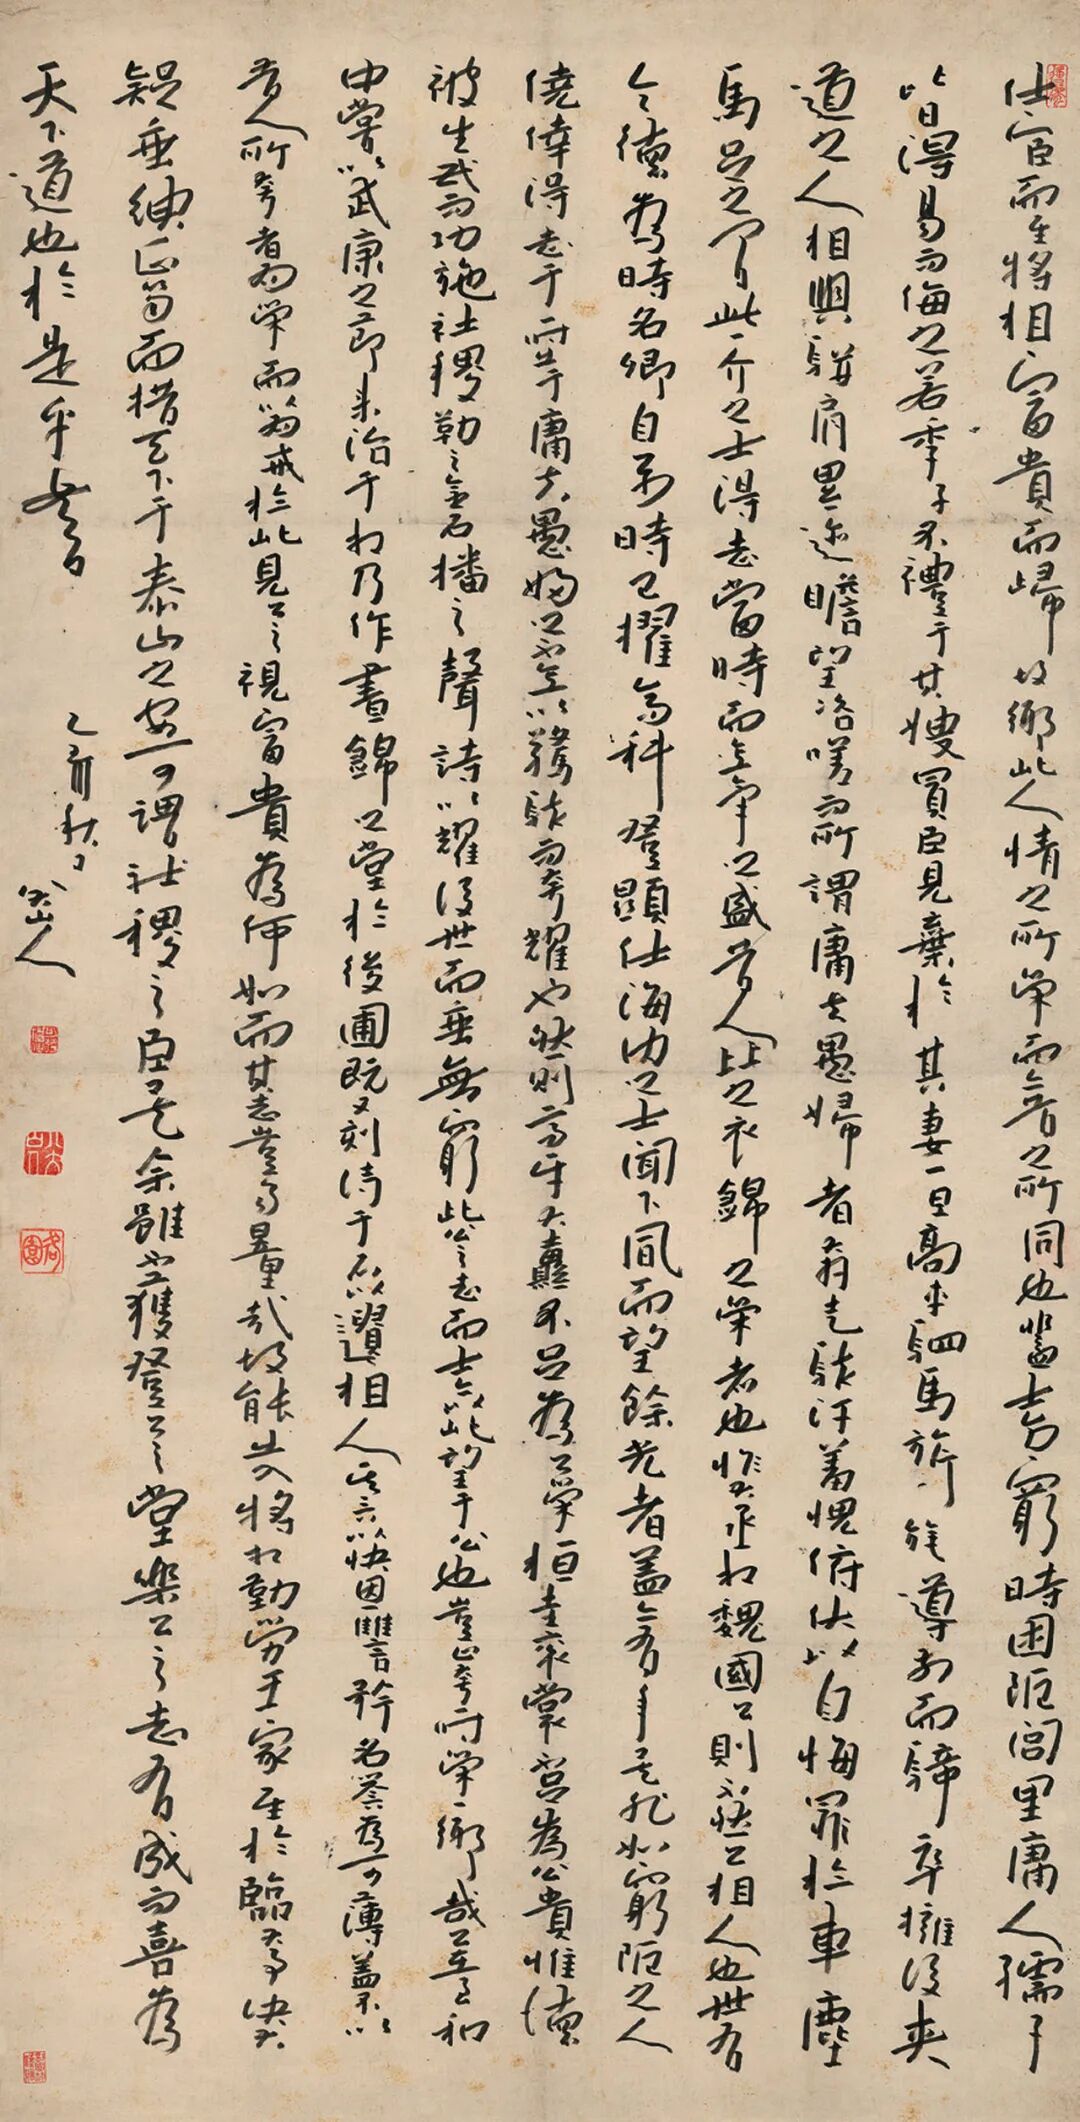 仕宦而至將相富貴而歸故鄉此人情之所榮而今昔之所同也蓋士方窮時困阨閭里庸人孺子
皆得易而侮之若季子不禮于其嫂買臣見棄於其妻一旦高車駟馬旗旄導前而騎卒擁後夾
道之人相與駢肩累迹瞻望咨嗟而所謂庸夫愚婦者奔走駭汗羞愧俯伏以自悔罪於車塵
馬足之間此一介之士得志當時而意氣之盛昔人比之衣錦之榮者也惟大丞相魏國公則不然公相人也世有
令德為時名卿自公少時已擢高科登顯仕海內之士聞下風而望餘光者蓋亦有年矣非如窮阨之人
僥倖得志于一時出于庸夫愚婦之不意以驚駭而夸耀也然則高牙大纛不足為公榮桓圭袞裳不足為公貴惟德
被生民而功施社稷勒之金石播之聲詩以耀後世而垂無窮此公之志而士亦以此望于公也豈止夸一時榮一鄉哉公在至和
中嘗以武康之節來治于相乃作晝錦之堂於後圃既又刻詩于石以遺相人其言以快恩讎矜名譽為可薄蓋不以
昔人所夸者為榮而以為戒於此見公之視富貴為何如而其志豈易量哉故能出入將相勤勞王家至於臨大事決大
疑垂紳正笏而措天下于泰山之安可謂社稷之臣矣余雖不獲登公之堂樂公之志有成而喜為
天下道也於是乎書
乙亥秋日
八大山人